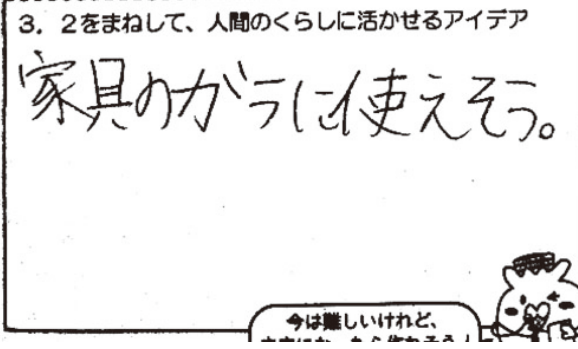 3．2をまねして、人間のくらしに活かせるアイデア
家具のガラに使えそう。
今は難しいけれど、